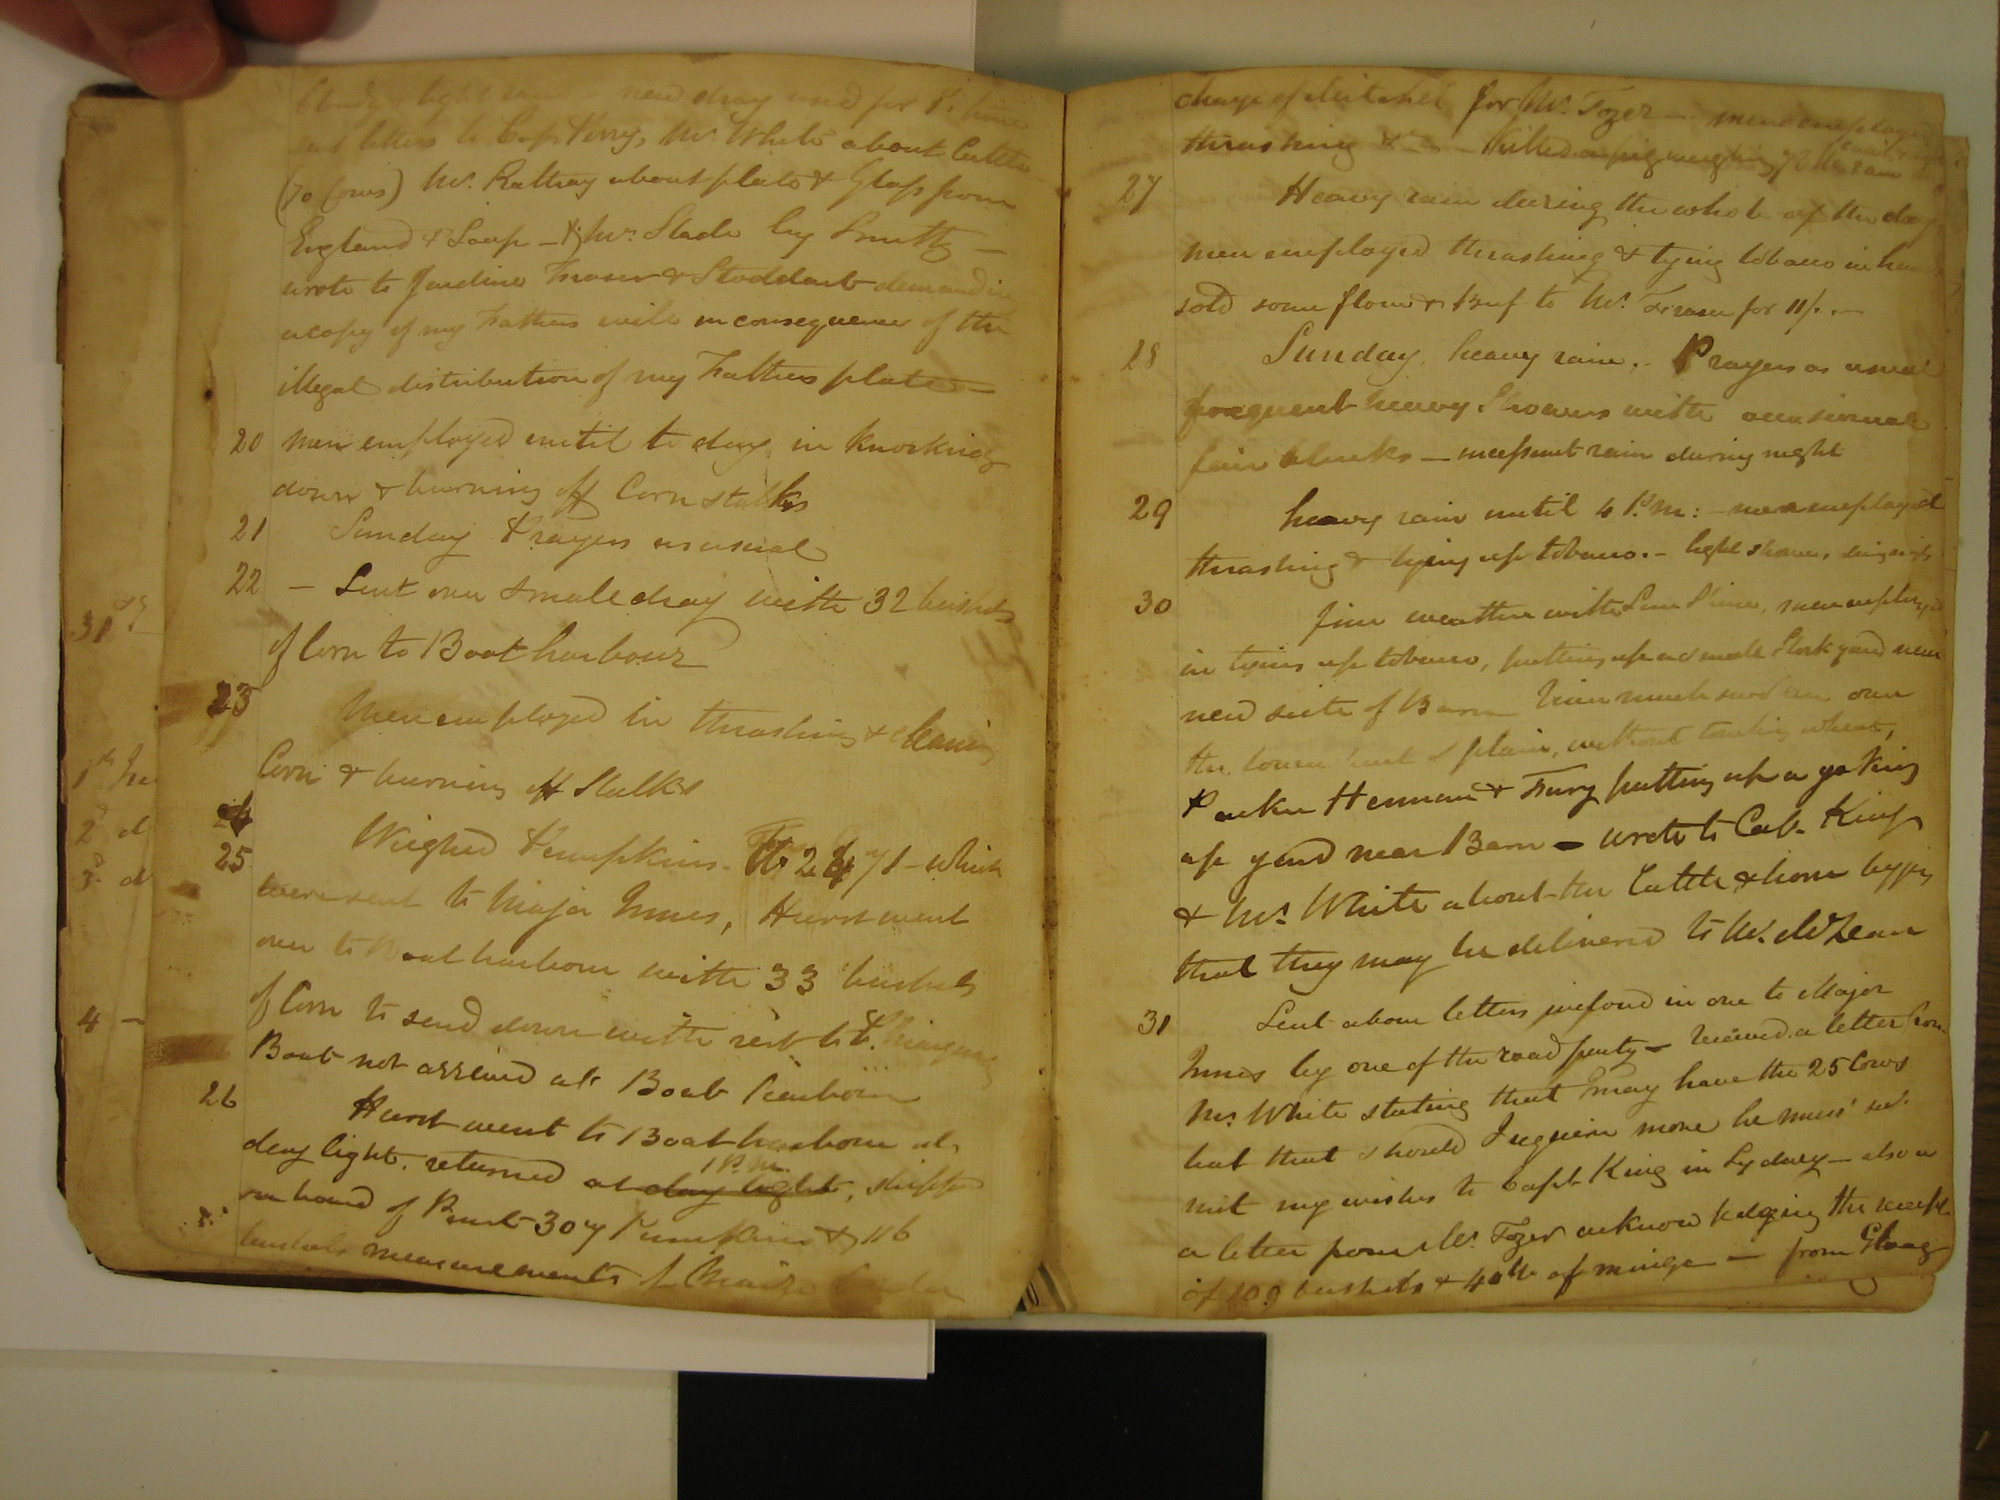 Cloudy & light rain - new dray used for
sent letters to Capt Perry, Mr. White about Cattle
(70 Cows) Mr. Rattray about plate & Glass from
England & Soap - & Mr. Slade by Smith -
wrote to Jardine Fraser & Stoddart demanding
a copy of my Fathers will in consequence of the
illegal distribution of my Fathers plate -
20 men employed until to day in knocking
down & burning off Corn stalks
21 Sunday Prayers as usual
22 - Sent over small dray with 32 bushels
of Corn to Boat harbour
23 Men employed in thrashing & cleaning
Corn & burning off Stalks
24
25 Weighed Pumpkins. 2471 - which
were sent to Major Innes, Hurst went
over to Boat harbour with 33 bushels
of Corn to send down with rest to
Boat not arrived at Boat harbour
26 Hurst went to Boat harbour at
day light. returned at day light 1 P.M., shipped
on board of Punt 307 Pumpkins & 116
bushels measurements of Maize
charge of Mitchel for Mr. Tozer - men employed
thrashing & - Killed a pig weighing 72 lbs
27 Heavy rain during the whole of the day
men employed thrashing & tying tobacco in
sold some flour & Beef to Mr. for 11/. -
28 Sunday. heavy rain. Prayers as usual
frequent heavy Showers with occasional
fair blinks - incessant rain during night
29 heavy rain until 4 P.M: - men employed
thrashing & tying up tobacco. - light showers during night
30 fine weather with Sun Shine, men employed
in tying up tobacco, putting up a small Stock yard near
new site of Barn over
the lower end of plain, without touching wheat,
Parker Hennan & Fury putting up a yoking
up yard near Barn - wrote to Capt King
& Mr. White about the Cattle & horse begging
that they may be delivered to Mr. McLean
31 Sent above letters inclosed in one to Major
Innes by one of the road party - received a letter from
Mr White stating that I may have the 25 Cows
but that should I require more he must sub-
mit my wishes to Capt King in Sydney - also a
a letter from Mr. Tozer acknowledging the receipt
of 109 bushels & 40 lbs of maize - from Gloag
31st
2d d
3d d
4 -